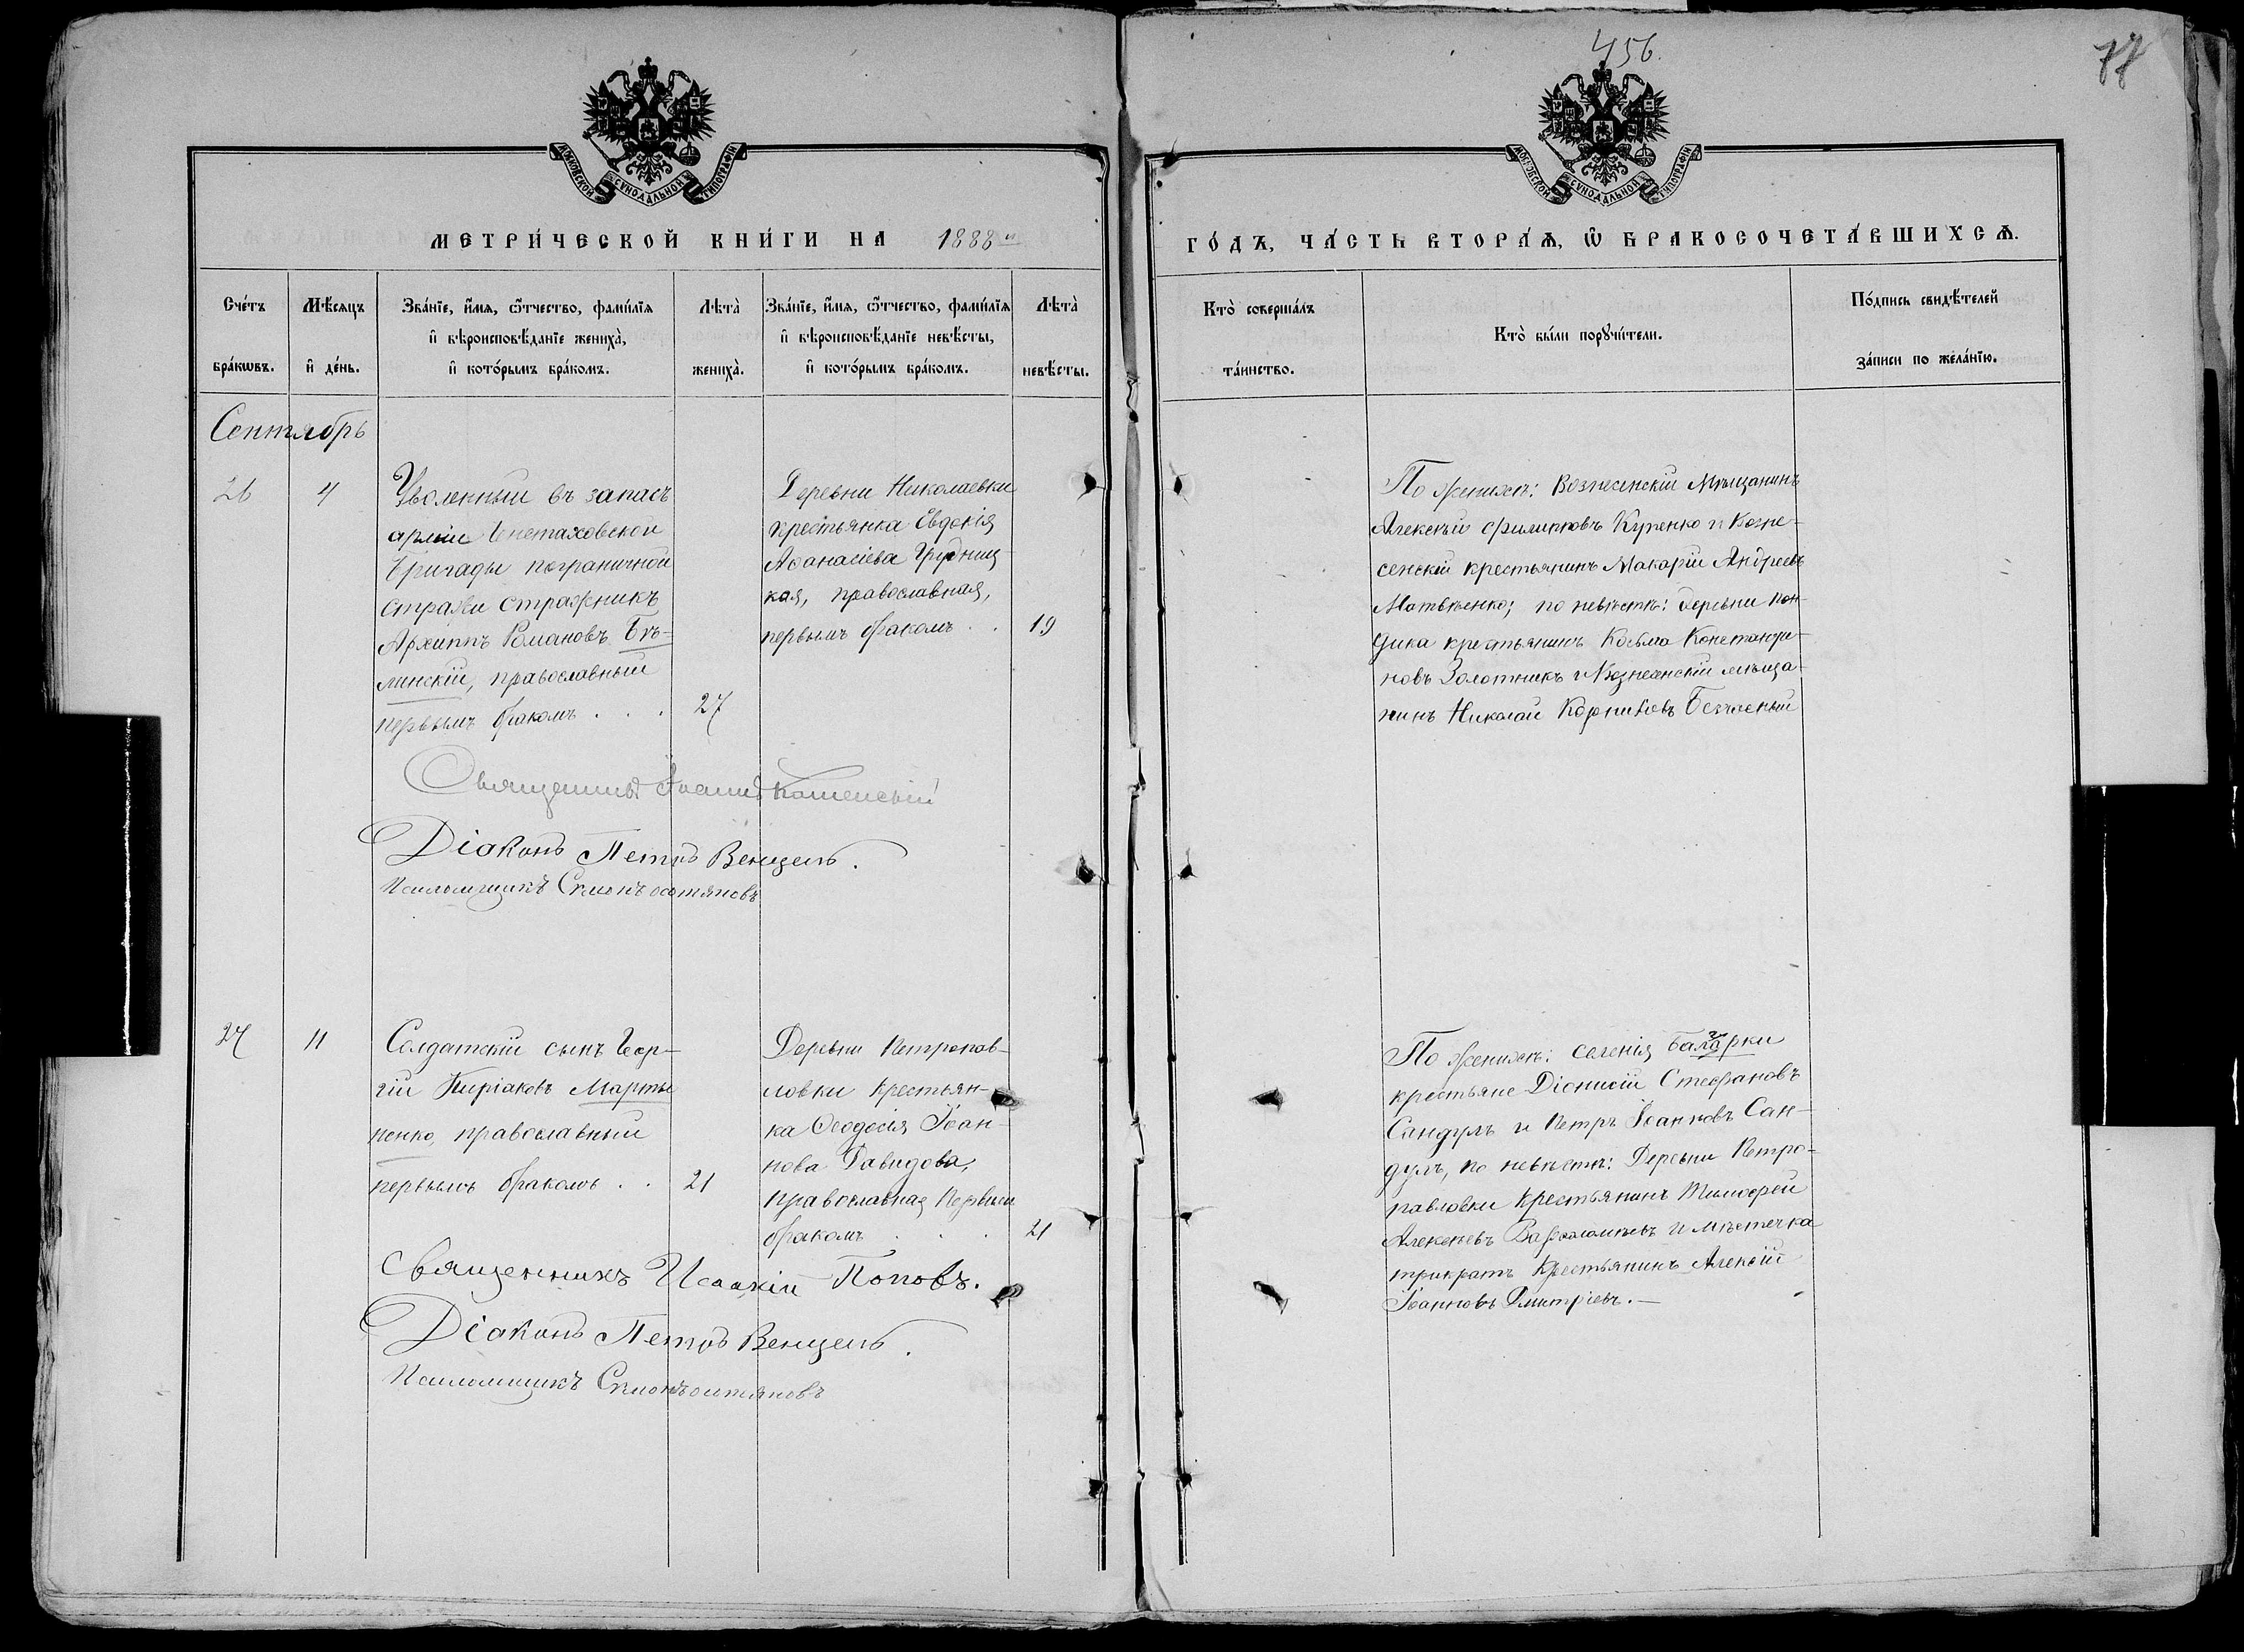 456.
77
МОСКОВСКОЙ СѴНОДАЛЬНОЙ ТИПОГРАФІИ
МОСКОВСКОЙ СѴНОДАЛЬНОЙ ТИПОГРАФІИ
МЕТРИ́ЧЕСКОЙ КНИ́ГИ НА 1888й
ГО́ДЪ, ЧА́СТЬ ВТОРА́Ѧ, Ѿ БРАКОСОЧЕТА́ВШИХСѦ.
Сче́тъ бра́кѡвъ.
Мѣ́сяцъ и҆ де́нь.
Зва́нїе, и҆́мѧ, ѻ҆́тчество, фами́лїѧ
и҆ вѣроисповѣ́данїе жениха̀,
и҆ кото́рымъ бра́комъ.
Лѣта̀ жениха̀.
Зва́нїе, и҆́мѧ, ѻ҆́тчество, фами́лїѧ
и҆ вѣроисповѣ́данїе невѣ́сты,
и҆ кото́рымъ бра́комъ.
Лѣта̀ невѣ́сты.
Кто̀ соверша́лъ та́инство.
Кто̀ бы́ли порꙋчи́тели.
По́дпись свидѣ́телей за́писи по жела́нїю.
Сентябрь
26
4
Уволенный въ запасъ
арміи
Бригады пограничной
стражи стражникъ
Архиппъ Романовъ Бѣ-
линскій, православный
первымъ бракомъ . . .
27
Деревни Николаевки
крестьянка Евдокія
Аѳанасіева Грудниц
кая, православная,
первымъ бракомъ . .
19
По женихѣ: Вознесенскій Мѣщанинъ
Алексѣй Филипповъ Куценко и Возне-
сенскій крестьянинъ Макарій Андреевъ
Матвѣенко; по невѣстѣ: деревни
крестьянинъ Косьма Константи-
новъ Золотникъ и Вознесенскій мѣща-
нинъ Николай Корниловъ
Священникъ Іоаннъ
Діаконъ Петръ Венцель.
Псаломщикъ
27
11
Солдатскій сынъ Геор-
гій Киріаковъ Марты
ненко, православный
первымъ бракомъ . .
21
Деревни Петропав-
ловки крестьян-
ка Ѳеодосія Іоан-
нова Давидова,
православная первымъ
бракомъ . . .
21
По женихѣ: селенія
крестьяне Діонисій Стефановъ
Сандулъ и Петръ Іоанновъ Сан-
дулъ, по невѣстѣ: Деревни Петро-
павловки крестьянинъ Тимофей
Алексѣевъ Варѳоломѣевъ и мѣстечка
трикратъ Крестьянинъ Алексій
Іоанновъ Дмитріевъ.—
Священникъ Исаакій Поповъ.
Діаконъ Петръ Венцель.
Псаломщикъ